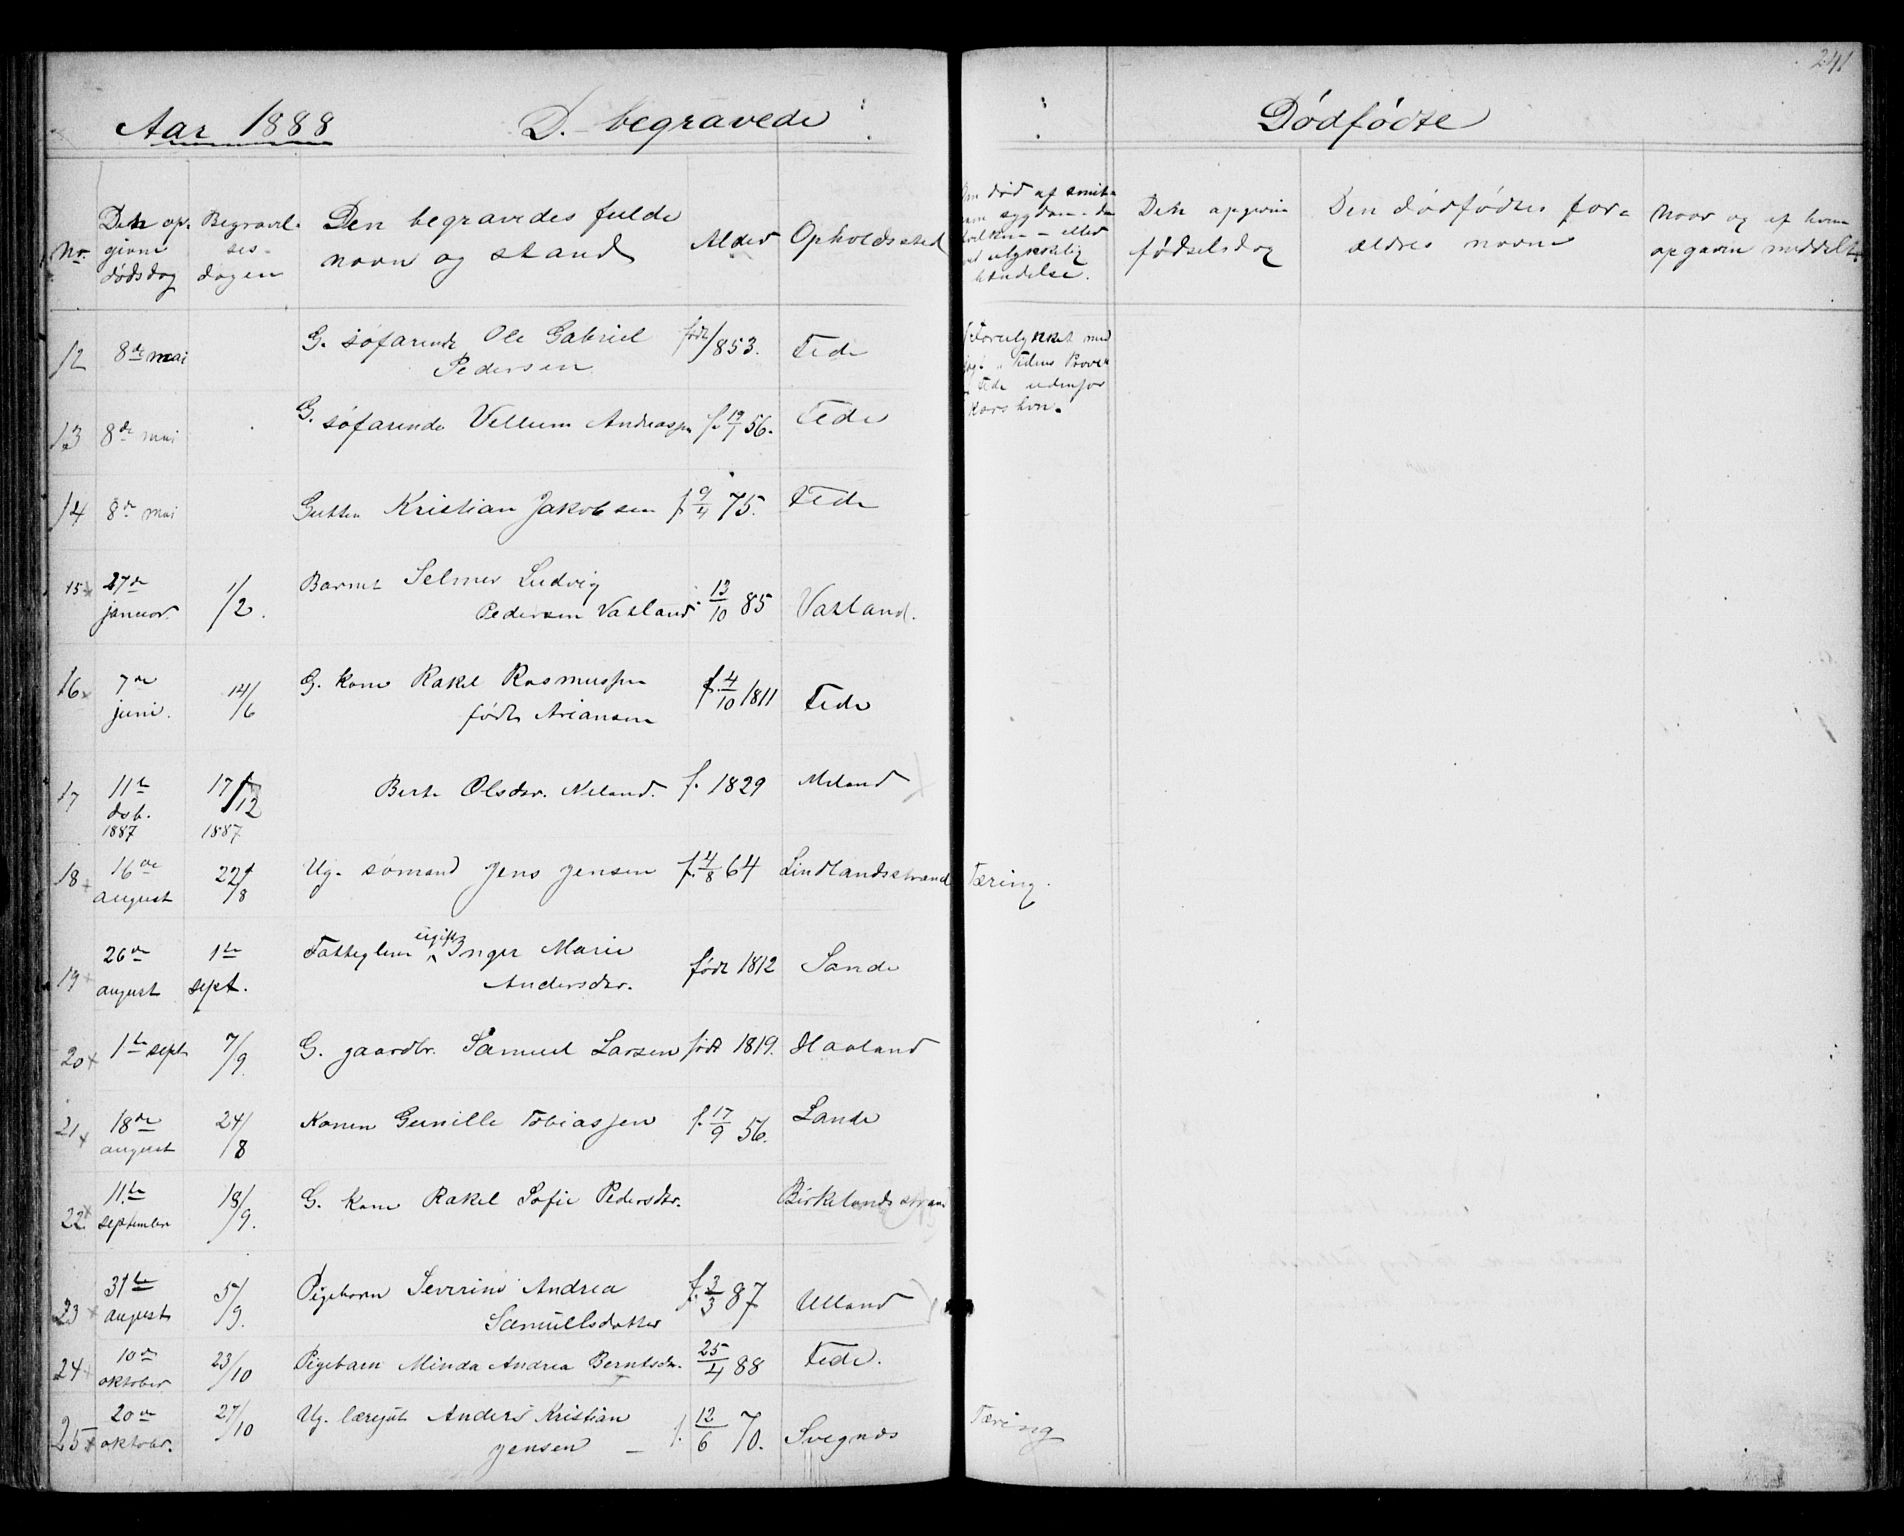 241
Aar 1888 D. begravede Dødfødte
No. Den op-givne dødsdag Begravel-ses-dagen Den begravedes fulde navn og stand Alder Opholdssted
Om død af smit-som sygdom - eller ved ulykkelig hændelse.
Den opgivne fødselsdag Den dødfødtes for-ældres navne Naar og af hvem opgaven meddelt.
12 8de mai G. søfarende Ole Gabriel Pedersen født /853. Fede Forulykket med Fede udenfor
13 8de mai G. søfarende Vellum Andreassen f. 19/1 56. Fede
14 8de mai Gutten Kristian Jakobsen f 9/4 75. Fede
15 27de januar. 1/2. Barnet Selmer Ludvig Pedersen Vatland 13/10 85 Vatland.
16 7de juni. 14/6 G. kone Rakel Rasmussen født Ariansen f. 4/10 1811 Fede
17 11te dsb. 1887 17/12 1887 Berte Olsdtr. Neland. f. 1829 Meland
18 16de august 22/8 Ug. sømand Jens Jensen f. 4/8 64 Lindlandsstrand Tæring.
19 26de august 1te sept. Fattiglem ugift Inger Marie Andersdtr. født 1812 Sande
20 1te sept 7/9. G. gaardbr. Samuel Larsen født 1819. Haaland
21 18de august 24/8 Konen Gunille Tobiassen f. 17/9 56. Lande
22 11te september 18/9. G. kone Rakel Sofie Pedersdtr. Birkelands
23 31te august 5/9. Pigebarn Severine Andrea Samuelsdatter f. 3/3 87 Ulland
24 10de oktober 23/10 Pigebarn Minda Andrea Berntsdtr. 25/4 88 Fede.
25 20de oktober. 27/10 Ug. læregut Anders Kristian Jensen – f. 12/6 70. Svegnæs Tæring